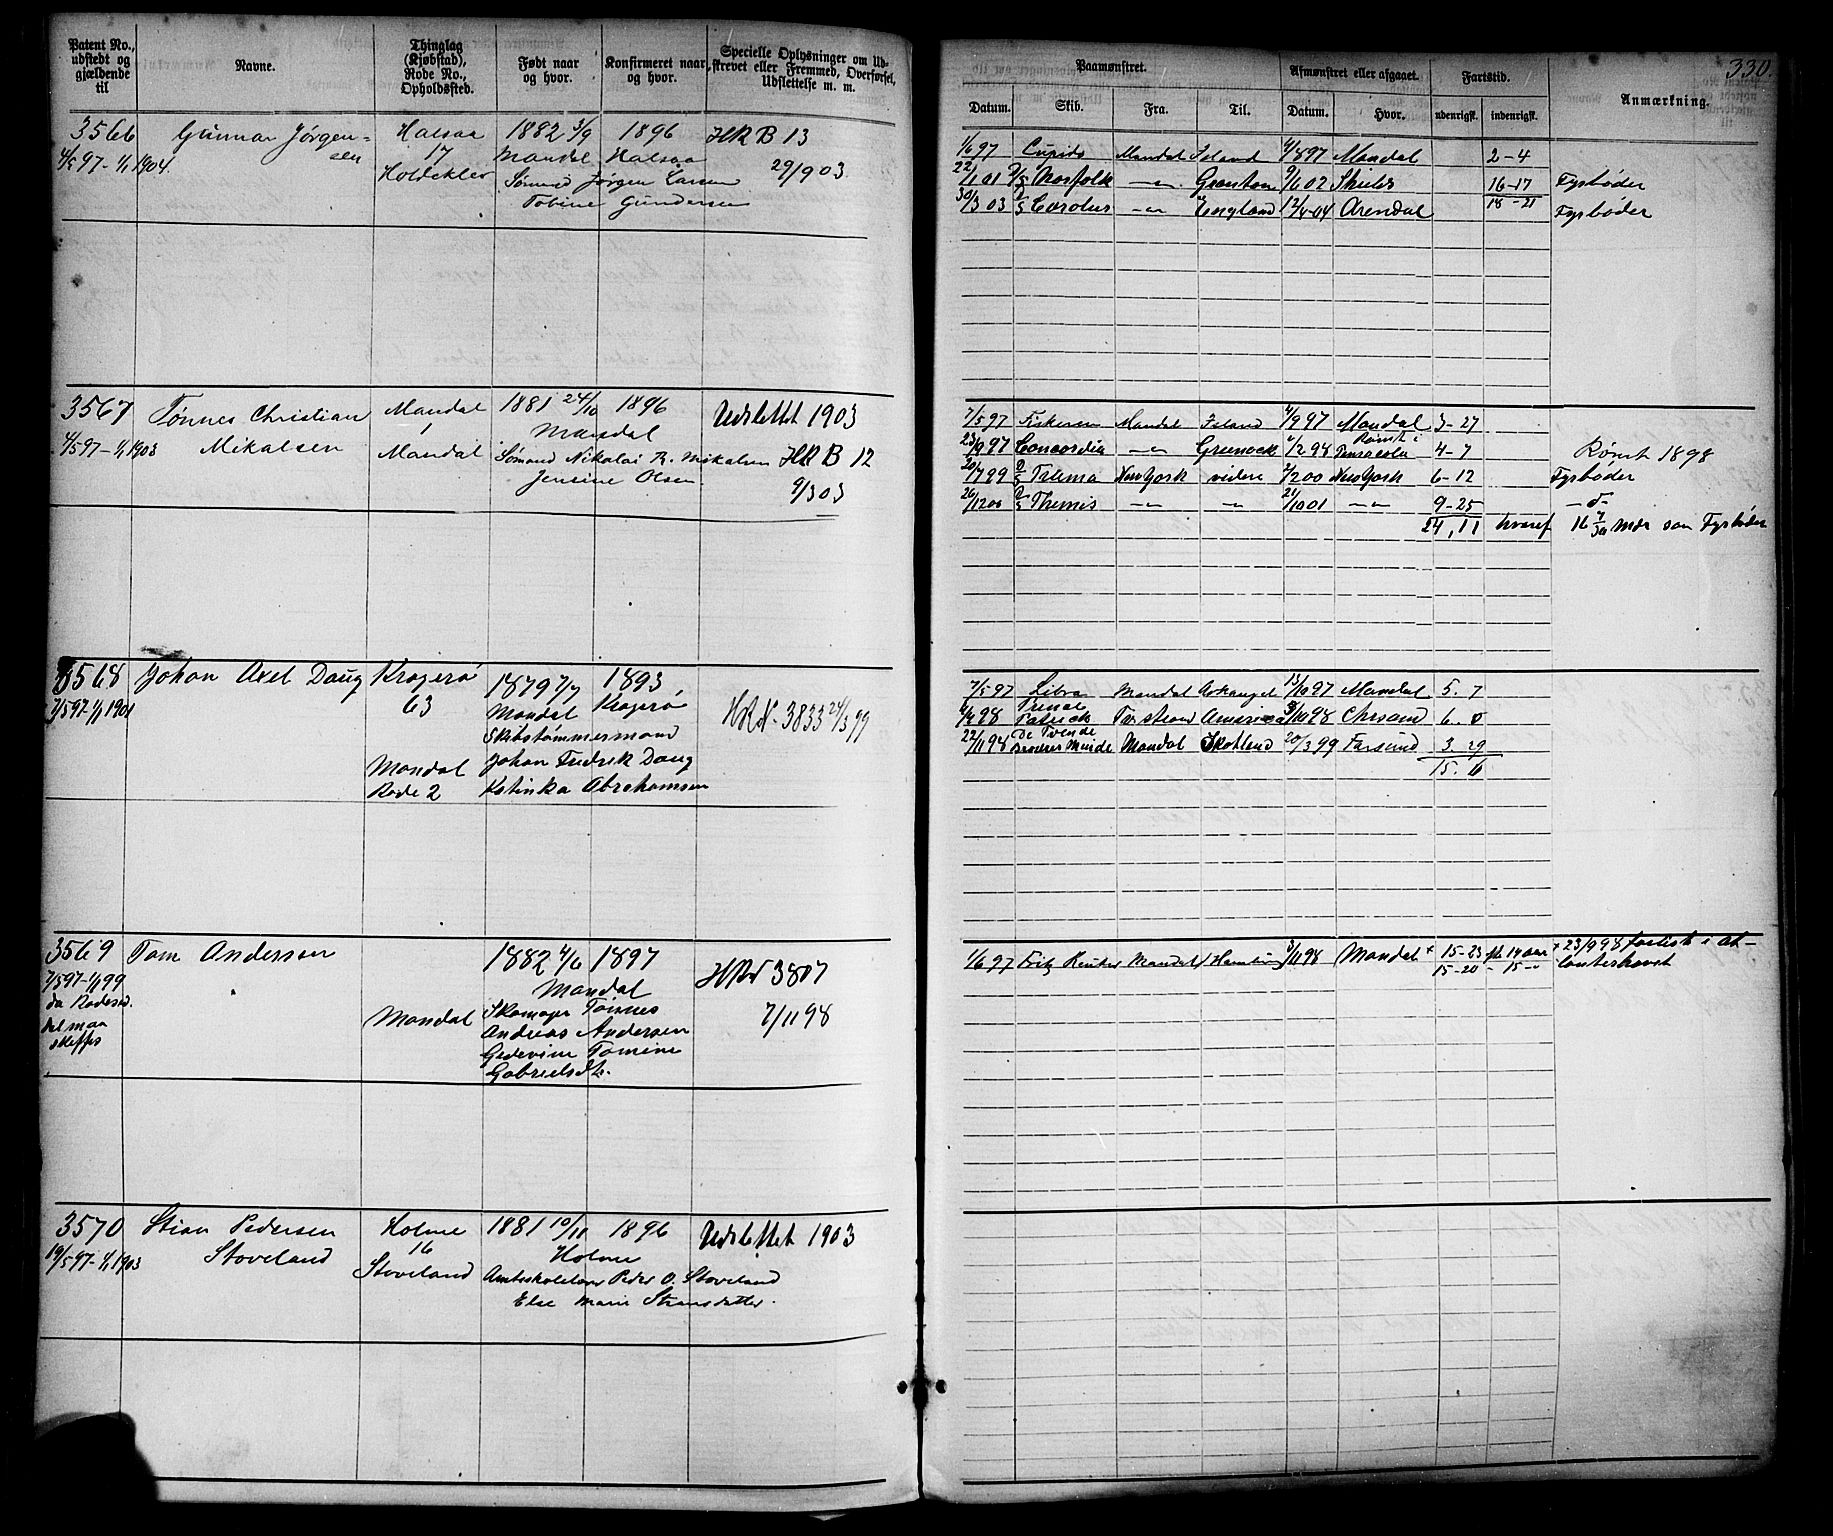 330.
Patent No., udstedt og gjældende til
Navne.
Thinglag (Kjøbstad), Rode No., Opholdssted.
Født naar og hvor.
Konfirmeret naar og hvor.
Specielle Oplysninger om Udskrevet eller Fremmed, Overførsel, Udslettelse m. m.
Paamønstret.
Afmønstret eller afgaaet.
Fartstid.
Anmærkning.
Datum.
Skib.
Fra.
Til.
Datum.
Hvor.
udenrigsk.
indenrigsk.
3566 Gunnar Jørgensen Halsaa 1882 3/9 1896 HR B 13
4/5 97 - 1/1 1904. 17 Mandal Halsaa 29/9 03
Sømand Jørgen Larsen
Tobine Gundersen
1/6 97 Cupido Mandal Island 4/8 97 Mandal 2-4
22/1 01 D/S Norfolk —"— Granton 9/6 02 Shields 16-17 Fyrbøder
30/3 03 D/S Carolus —"— England 12/4 04 Arendal 18-21 Fyrbøder
3567 Tønnes Christian Mandal 1881 24/10 1896 Udslettet 1903
4/5 97 - 1/1 1903 Mikalsen Mandal Mandal
Sømand Nikolai R. Mikalsen HR B 12
Jensine Olsen 9/3 03
7/5 97 Fiskeren Mandal Island 4/9 97 Mandal 3-27
23/9 97 Concordia —"— Greenock 4/2 98 Rømt i Pensacola 4-7 Rømt 1898
20/7 99 New York videre 7/2 00 New York 6-12 Fyrbøder
26/12 00 D/S Themis —"— —"— 21/10 01 —"— 9-25
24,11 hvoraf 16 7/30 Mdr som Fyrbøder
3568 Johan Axel Daug Kragerø 1879 7/7 1893
7/5 97 - 1/1 1901 63 Mandal Kragerø HR N. 3833 24/3 99
Skibstømmermand
Mandal Johan Fredrik Daug
Rode 2 Katinka Abrahamsen
7/5 97 Libra Mandal Arkangel 13/10 97 Mandal 5. 7
98 Prinds Patrick America 98 Chrsand 6. 0
22/11 98 De Tvende Brødres Minde Mandal Skotland 20/3 99 Farsund 3. 29
15. 6
3569 Tom Andersen 1882 4/6 1897 HR N 3807
7/5 97 - 1/1 99 Mandal 7/11 98
Mandal Skomager Tønnes
Andreas Andersen
Gedevine Tomine
Gabrielsdtr.
1/6 97 Fritz Reuter Mandal 98 Mandal + 15-23 14 aar + 23/9 98 forlist i
15-20 - 15 -"-
3570 Stian Pedersen Holme 1881 10/11 1896 Udslettet 1903
19/5 97 - 1/1 1903 Stoveland 16 Holme
Stoveland Amtsskolelærer Peder O. Stoveland
Else Marie